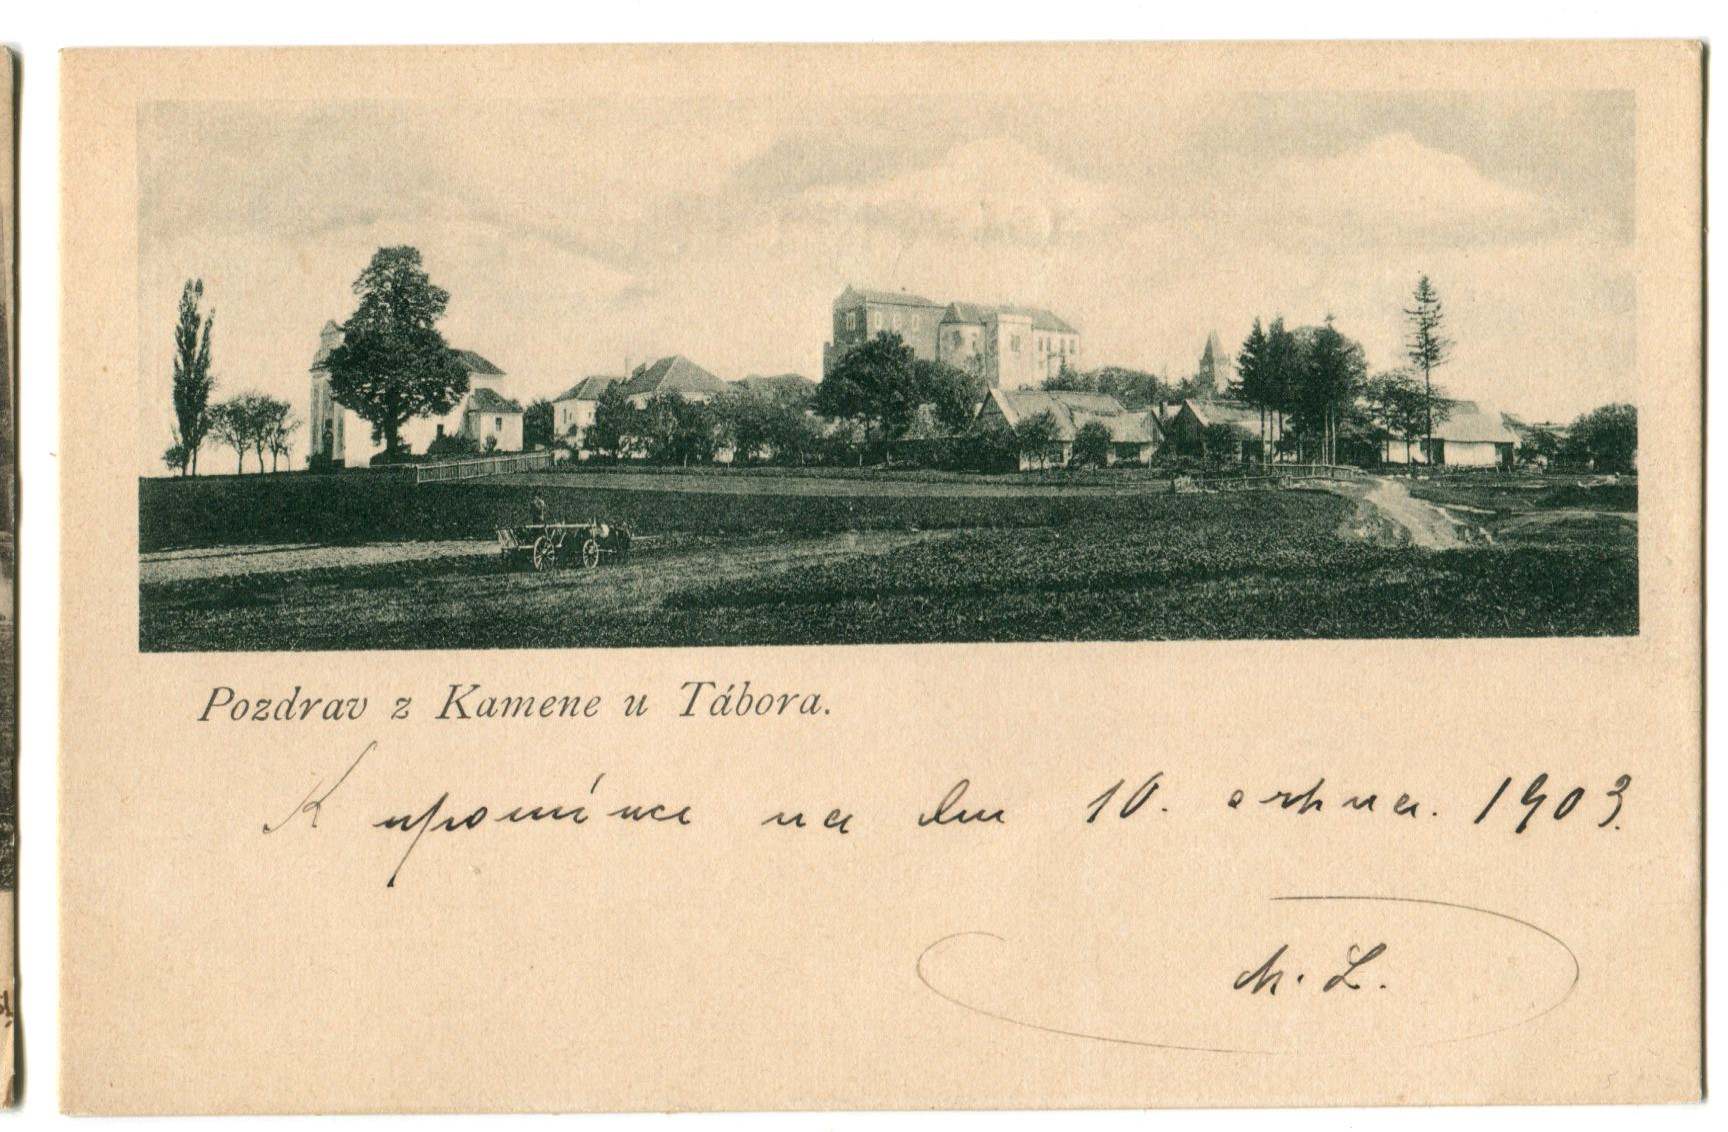 Pozdrav z Kamene u Tábora.
K upomínce na den 10. srpna. 1903.
M. L.